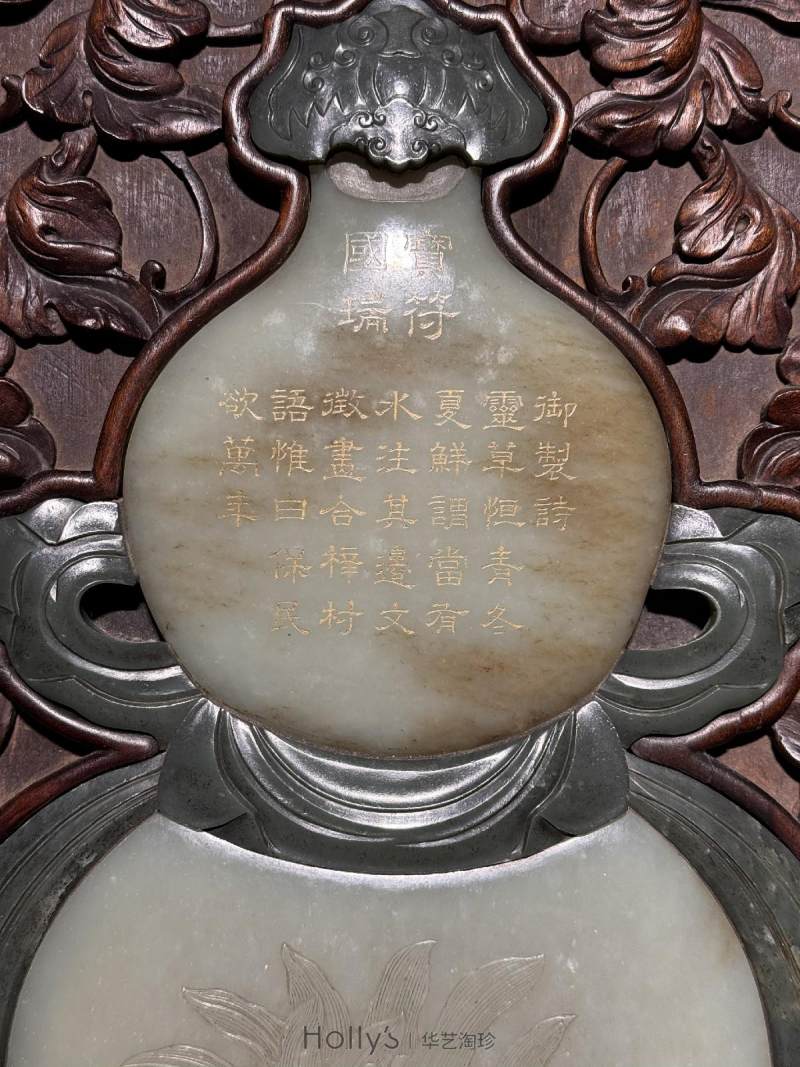 寶符
國瑞
御製詩
靈草恒青冬
夏鮮謂當有
水注其邊文
徵畫合梓材
語惟曰保民
欲萬年
Holly's | 华艺淘珍